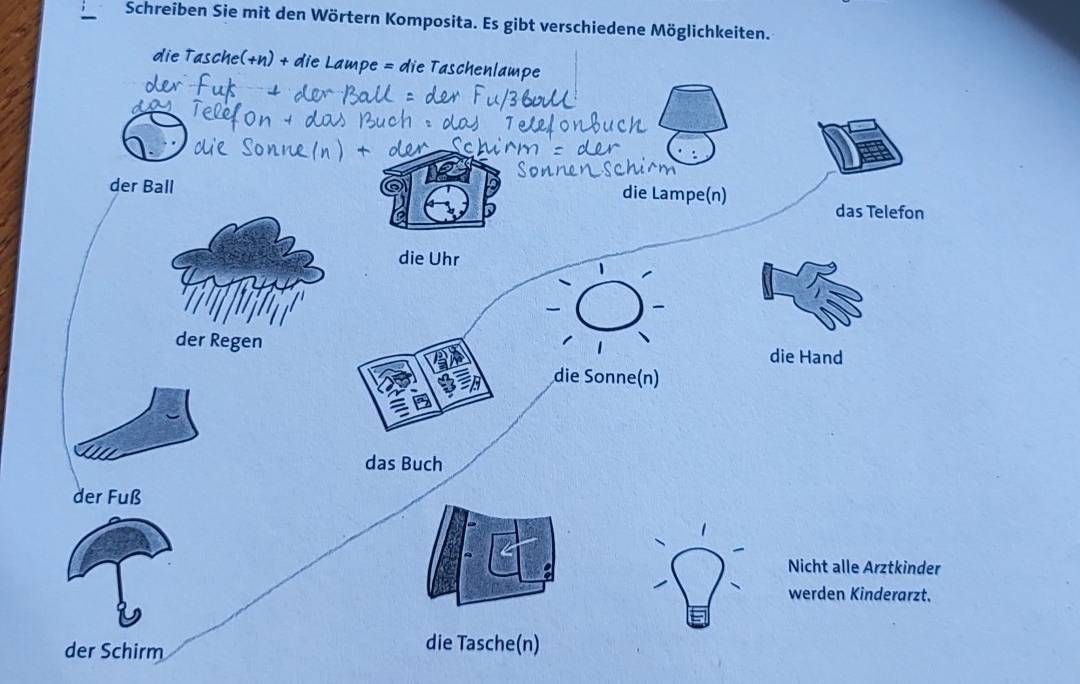 Schreiben Sie mit den Wörtern Komposita. Es gibt verschiedene Möglichkeiten.
die Tasche(+n) + die Lampe = die Taschenlampe
der Fuß + der Ball = der Fußball
das Telefon + das Buch = das Telefonbuch
die Sonne(n) + der Schirm = der
Sonnenschirm
der Ball
die Lampe(n)
das Telefon
die Uhr
der Regen
die Hand
die Sonne(n)
das Buch
der Fuß
Nicht alle Arztkinder
werden Kinderarzt.
die Tasche(n)
der Schirm